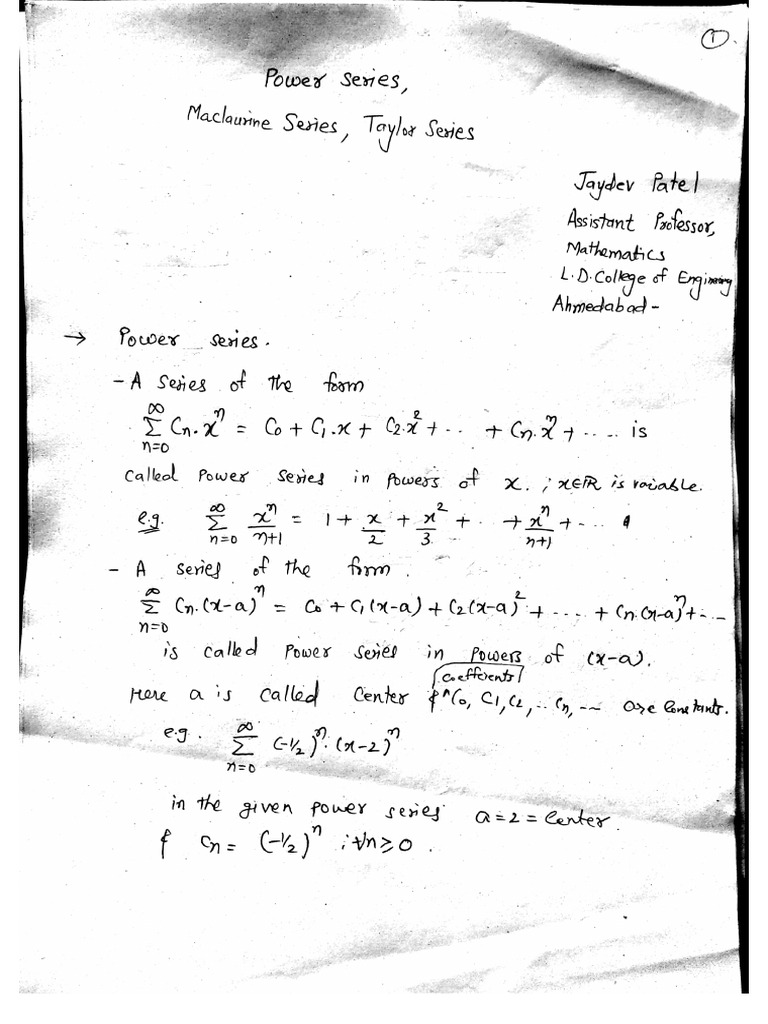 ①.
Power Series,
Maclaurine Series, Taylor Series
Jaydev Patel
Assistant Professor,
Mathematics
L.D. College of Engineering
Ahmedabad -
→ Power series.
- A Series of the form
∞ Σ n=0 Cn.xⁿ = C0 + C1.x + C2.x² + .. + Cn.xⁿ + .... is
called Power Series in Powers of x. ; x∈ℝ is variable.
e.g. ∞ Σ n=0 xⁿ/n+1 = 1 + x/2 + x²/3 + .. + xⁿ/n+1 + ...
- A series of the form.
∞ Σ n=0 Cn.(x-a)ⁿ = C0 + C1(x-a) + C2(x-a)² + .... + Cn.(x-a)ⁿ + ...
is called Power Series in Powers of (x-a).
coefficients
Here a is called Center & ^ C0, C1, C2, .. Cn, -- are Constants.
e.g. ∞ Σ n=0 (-1/2)ⁿ. (x-2)ⁿ
in the given power series a=2= Center.
& Cn = (-1/2)ⁿ ; ∀n≥0.